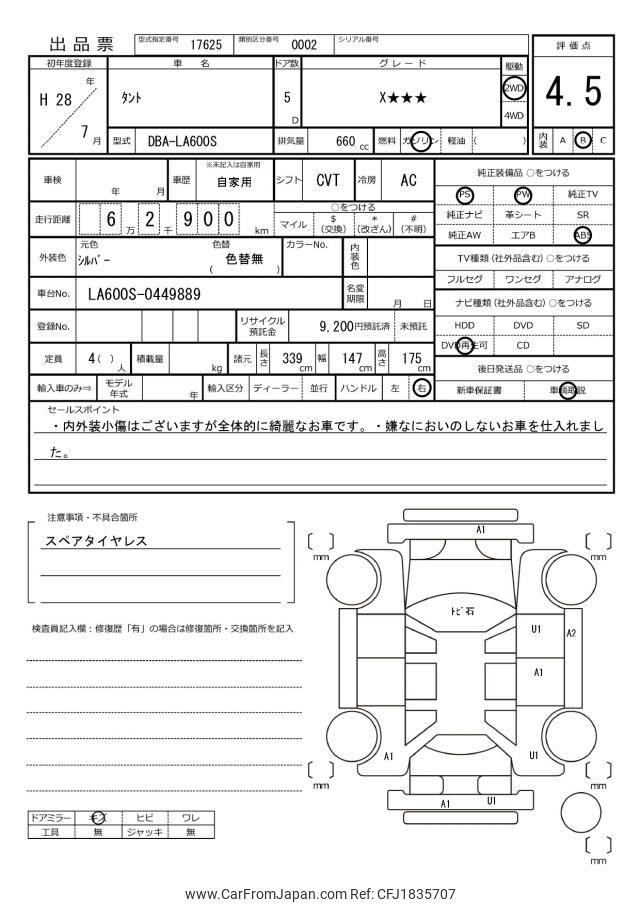 出品票 型式指定番号 17625 類別区分番号 0002 シリアル番号
評価点
4.5
内装 A B C
初年度登録 車名 ドア数 グレード 駆動
H 28 年 7 月 タント 5 D X★★★ 2WD 4WD
型式 DBA-LA600S 排気量 660 cc 燃料 ガソリン 軽油 ( )
車検 年 月 車歴 ※未記入は自家用 自家用 シフト CVT 冷房 AC
走行距離 6 万 2 千 9 0 0 km
○をつける
マイル $(交換) *(改ざん) #(不明)
外装色 元色 シルバー 色替 ( 色替無 ) カラーNo. 内装色
車台No. LA600S-0449889 名変期限 月 日
登録No. リサイクル預託金 9,200円預託済 未預託
定員 4( )人 積載量 kg 諸元 長さ 339cm 幅 147cm 高さ 175cm
輸入車のみ⇒ モデル年式 年 輸入区分 ディーラー 並行 ハンドル 左 右
純正装備品 ○をつける
PS PW 純正TV
純正ナビ 革シート SR
純正AW エアB ABS
TV種類(社外品含む)○をつける
フルセグ ワンセグ アナログ
ナビ種類(社外品含む)○をつける
HDD DVD SD
DVD再生可 CD
後日発送品 ○をつける
新車保証書 車輌取説
セールスポイント
・内外装小傷はございますが全体的に綺麗なお車です。・嫌なにおいのしないお車を仕入れまし
た。
注意事項・不具合箇所
スペアタイヤレス
検査員記入欄：修復歴「有」の場合は修復箇所・交換箇所を記入
ドアミラー キズ ヒビ ワレ
工具 無 ジャッキ 無
A1
mm mm
トビ石
U1 A2
A1
A1 U1
mm mm
A1 U1
mm
www.CarFromJapan.com Ref: CFJ1835707